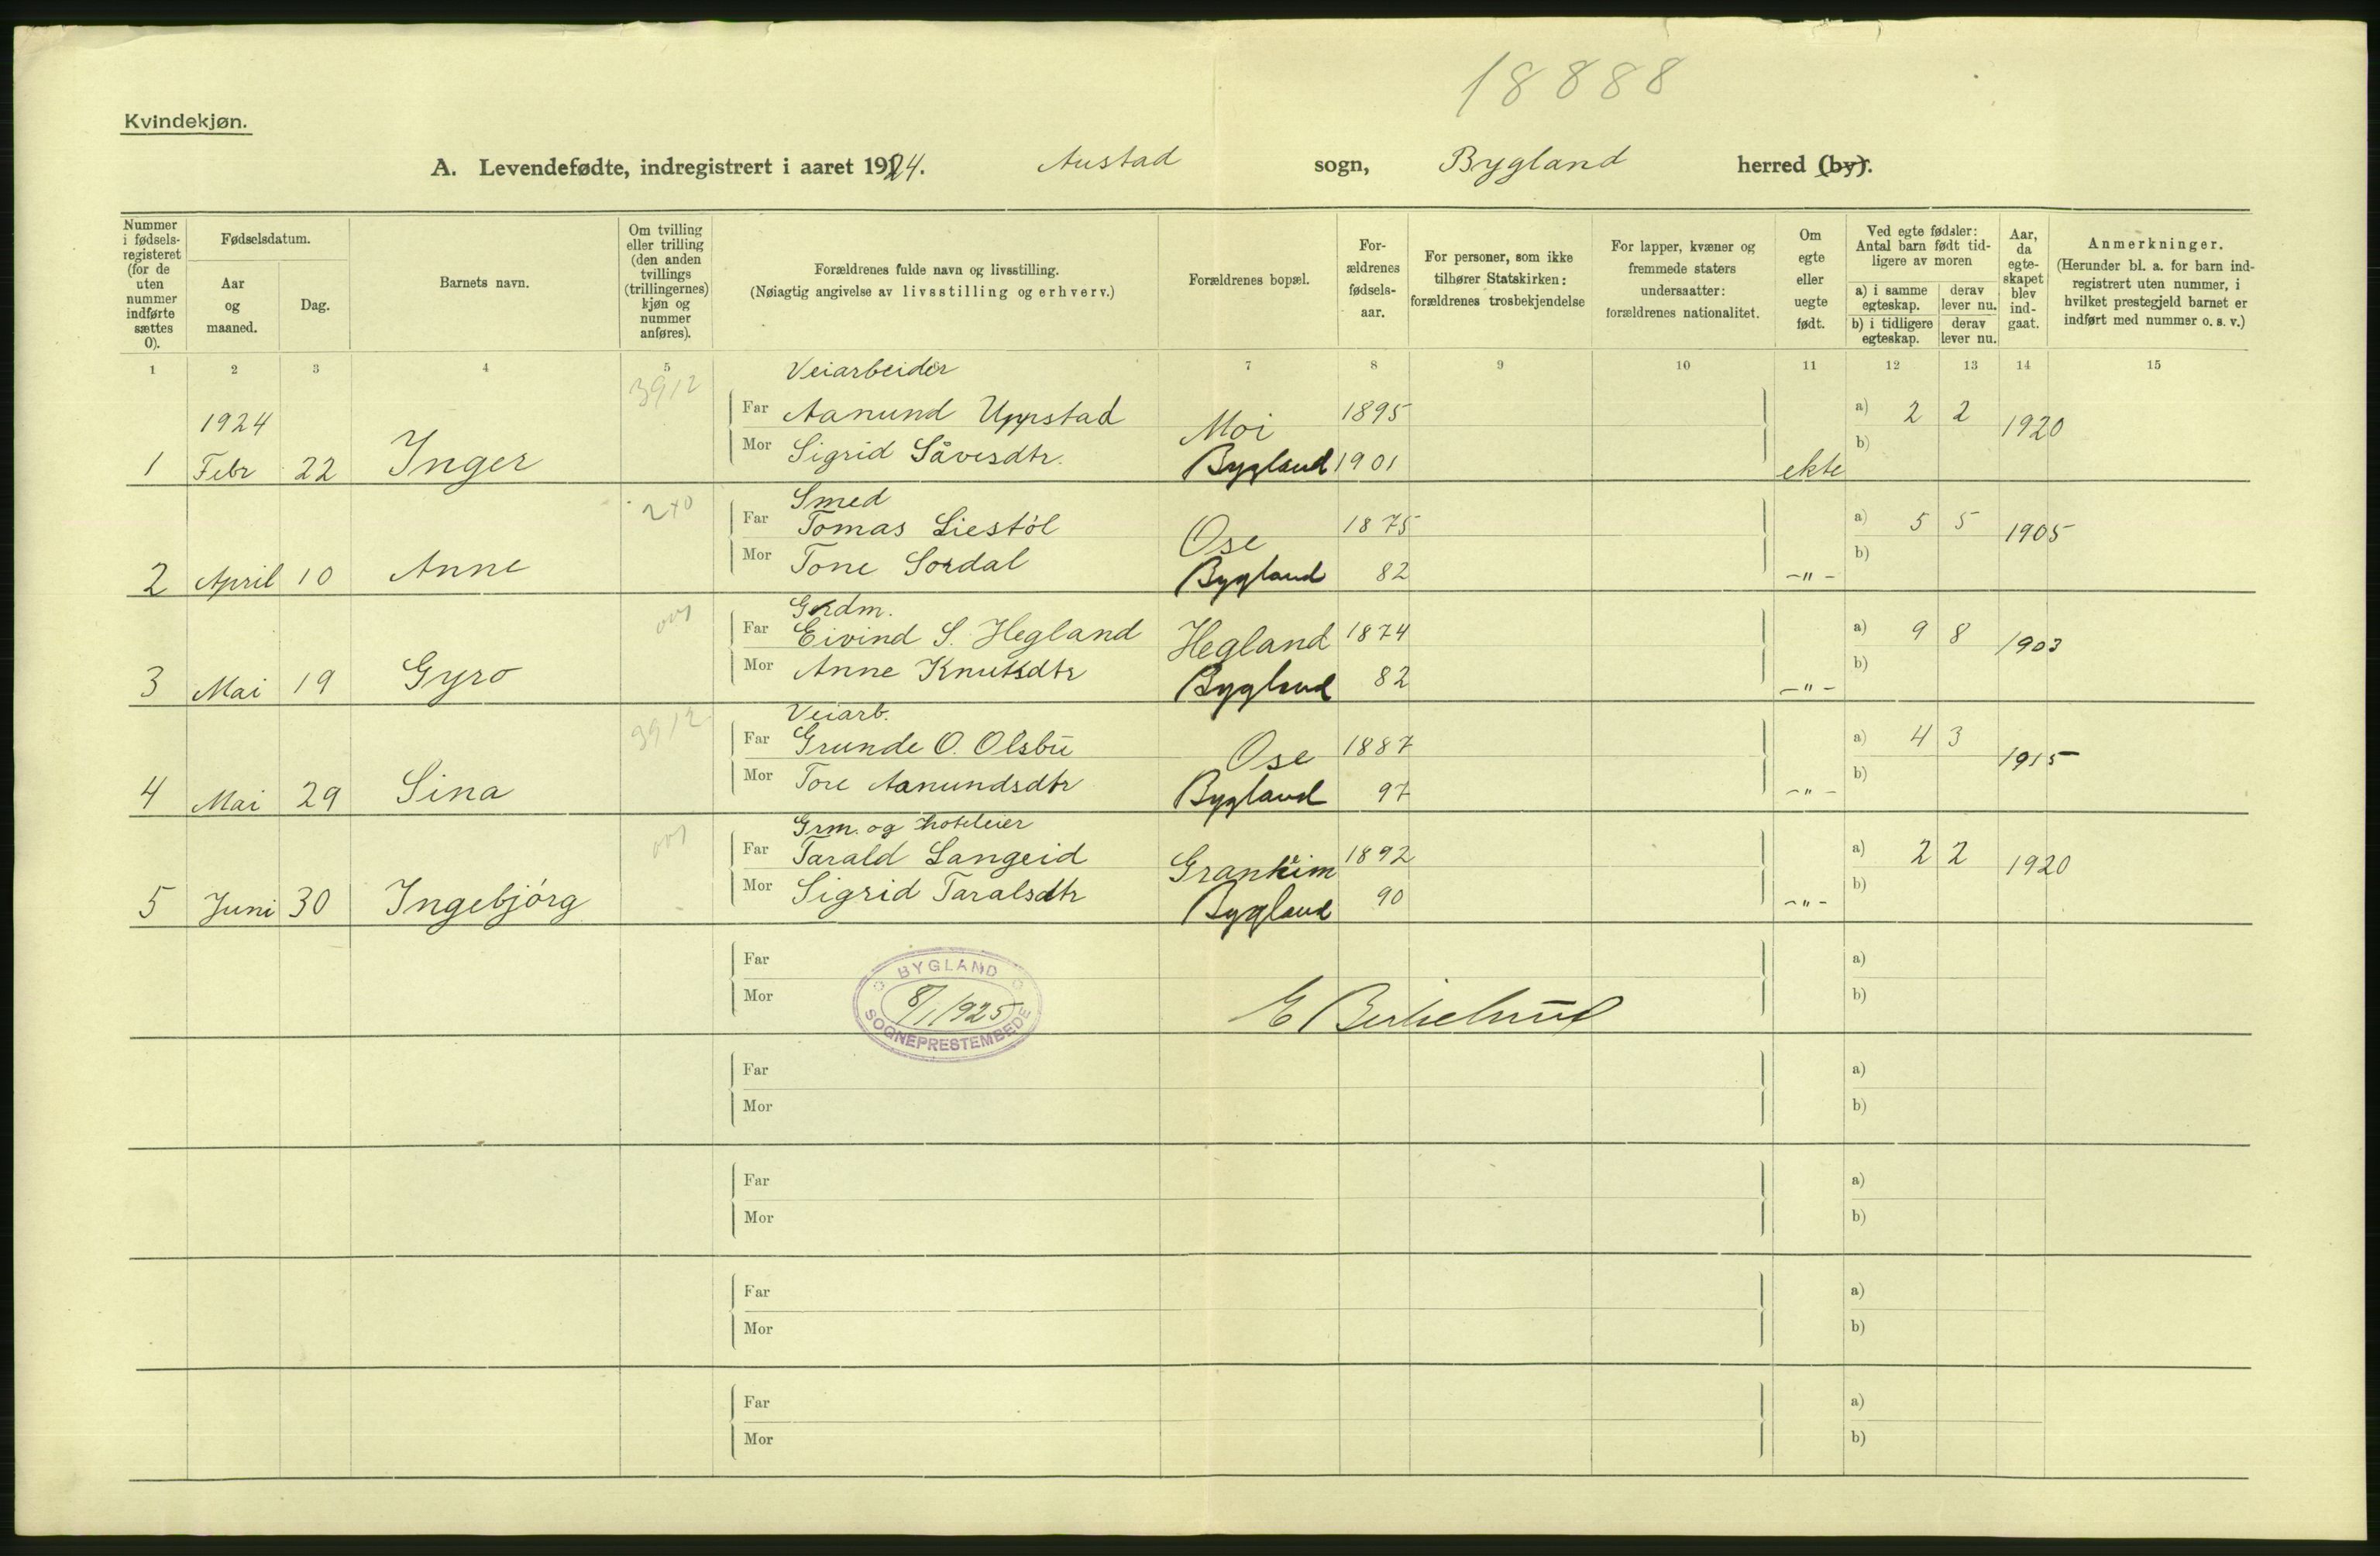 18888
Kvindekjøn.
A. Levendefødte, indregistrert i aaret 1924. Austad sogn, Bygland herred (by).
Nummer i fødsels-registeret (for de uten nummer indførte sættes 0).
Fødselsdatum.
Aar og maaned.
Dag.
Barnets navn.
Om tvilling eller trilling (den anden tvillings (trillingernes) kjøn og nummer anføres).
Forældrenes fulde navn og livsstilling.
(Nøiagtig angivelse av livsstilling og erhverv.)
Forældrenes bopæl.
For-ældrenes fødsels-aar.
For personer, som ikke tilhører Statskirken: forældrenes trosbekjendelse
For lapper, kvæner og fremmede staters undersaatter: forældrenes nationalitet.
Om egte eller uegte født.
Ved egte fødsler: Antal barn født tid-ligere av moren
a) i samme egteskap.
derav lever nu.
b) i tidligere egteskap.
derav lever nu.
Aar, da egte-skapet blev ind-gaat.
Anmerkninger.
(Herunder bl. a. for barn ind-registrert uten nummer, i hvilket prestegjeld barnet er indført med nummer o. s. v.)
1 2 3 4 5 7 8 9 10 11 12 13 14 15
3912 Veiarbeider
1924 Far Aanund Uppstad Moi 1895 a) 2 2 1920
1 Febr 22 Inger Mor Sigrid Såvesdtr. Bygland 1901 ekte b)
240 Smed
Far Tomas Liestöl Ose 1875 a) 5 5 1905
2 April 10 Anne Mor Tone Sordal Bygland 82 -"- b)
Grdm.
Far Eivind S. Hegland Hegland 1874 a) 9 8 1903
3 Mai 19 Gyro Mor Anne Knutsdtr Bygland 82 -"- b)
3912 Veiarb.
Far Grunde O. Olsbu Ose 1887 a) 4 3 1915
4 Mai 29 Sina Mor Tore Aanundsdtr Bygland 97 -"- b)
Grm. og hoteleier
Far Tarald Langeid Granheim 1892 a) 2 2 1920
5 Juni 30 Ingebjörg Mor Sigrid Taralsdtr Bygland 90 -"- b)
Far a)
Mor b)
BYGLAND
8/1 1925
SOGNEPRESTEMBEDE
Far a)
Mor b)
Far a)
Mor b)
Far a)
Mor b)
Far a)
Mor b)